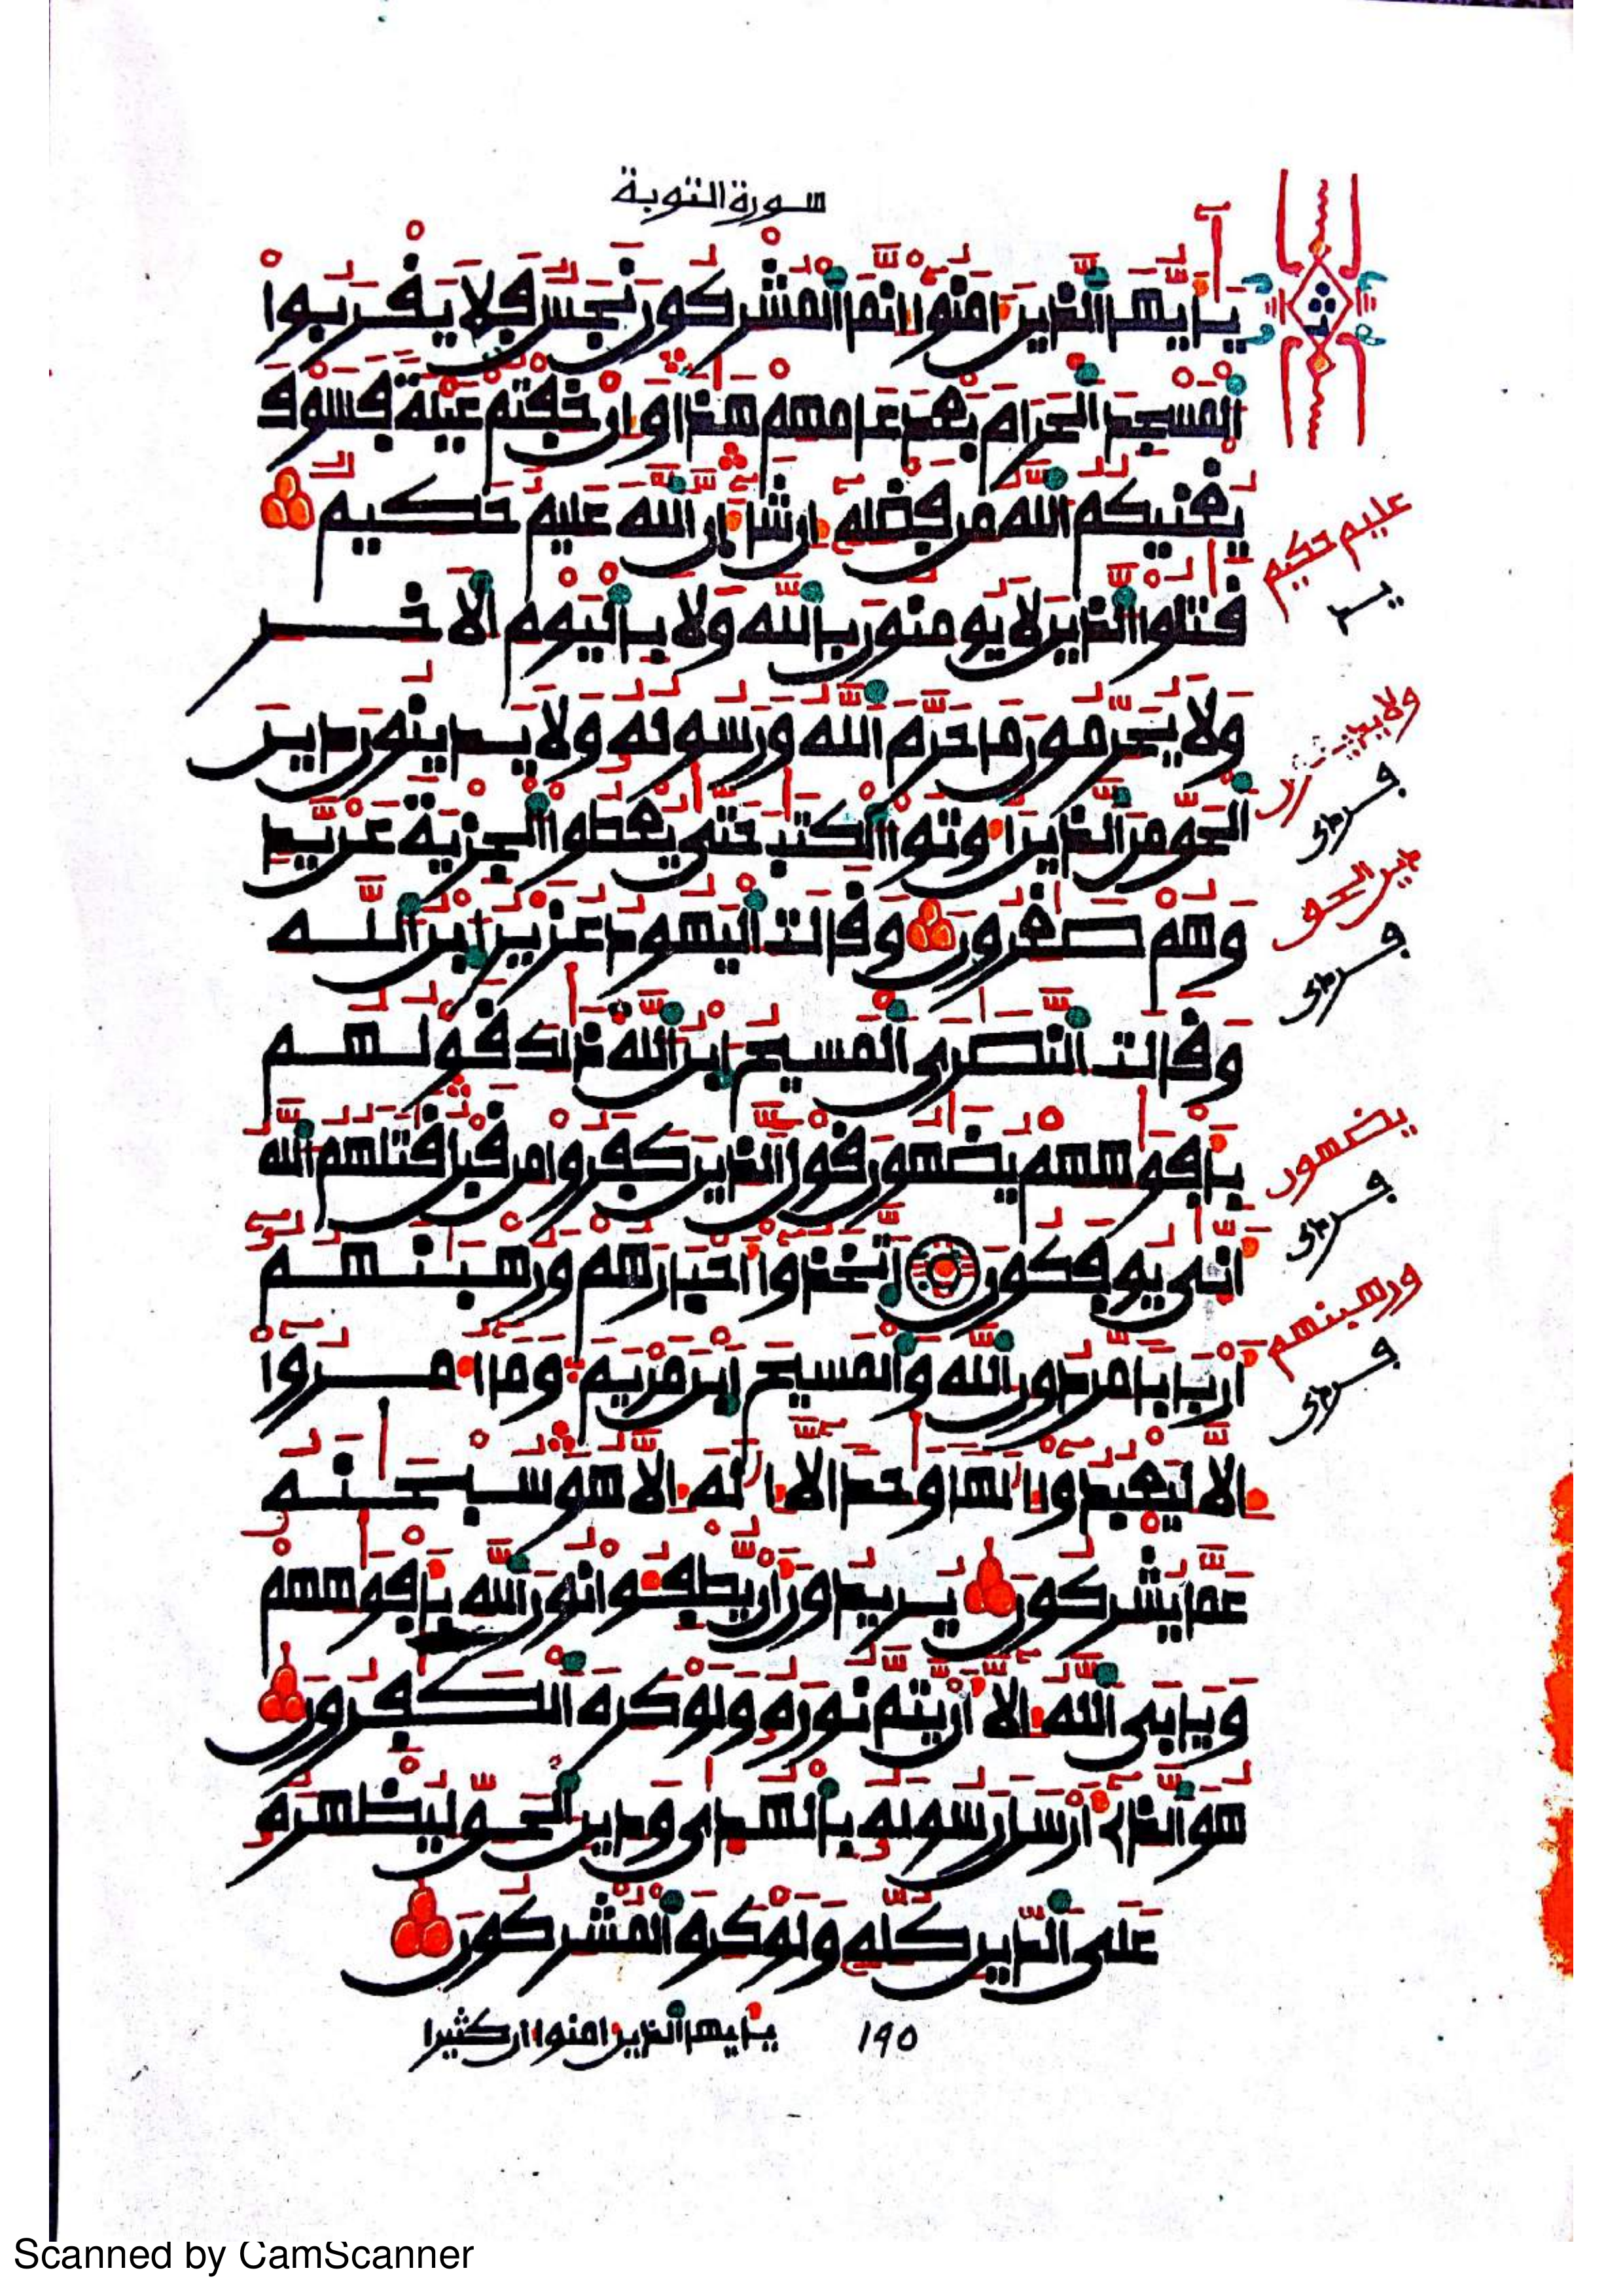 سورة التوبة
يَٰأَيُّهَا ٱلذِينَ ءَامَنُوا إِنَّمَا ٱلْمُشْرِكُونَ نَجَسٌ فَلَا يَقْرَبُوا
ٱلْمَسْجِدَ ٱلْحَرَامَ بَعْدَ عَامِهِمْ هَٰذَا وَإِنْ خِفْتُمْ عَيْلَةً فَسَوْفَ
يُغْنِيكُمُ ٱللَّهُ مِن فَضْلِهِ إِن شَاءَ إِنَّ ٱللَّهَ عَلِيمٌ حَكِيمٌ
قَٰتِلُوا ٱلذِينَ لَا يُومِنُونَ بِٱللَّهِ وَلَا بِٱلْيَوْمِ ٱلَاخِرِ
وَلَا يُحَرِّمُونَ مَا حَرَّمَ ٱللَّهُ وَرَسُولُهُ وَلَا يَدِينُونَ دِينَ
ٱلْحَقِّ مِنَ ٱلذِينَ أُوتُوا ٱلْكِتَٰبَ حَتَّىٰ يُعْطُوا ٱلْجِزْيَةَ عَنْ يَّدٍ
وَهُمْ صَٰغِرُونَ وَقَالَتِ ٱلْيَهُودُ عُزَيْرُ ٱبْنُ ٱللَّهِ
وَقَالَتِ ٱلنَّصَٰرَى ٱلْمَسِيحُ ٱبْنُ ٱللَّهِ ذَٰلِكَ قَوْلُهُم
بِأَفْوَٰهِهِمْ يُضَٰهُونَ قَوْلَ ٱلذِينَ كَفَرُوا مِن قَبْلُ قَٰتَلَهُمُ ٱللَّهُ
أَنَّىٰ يُوفَكُونَ ٱتَّخَذُوا أَحْبَارَهُمْ وَرُهْبَٰنَهُمْ
أَرْبَابًا مِّن دُونِ ٱللَّهِ وَٱلْمَسِيحَ ٱبْنَ مَرْيَمَ وَمَا أُمِرُوا
إِلَّا لِيَعْبُدُوا إِلَٰهًا وَٰحِدًا لَّا إِلَٰهَ إِلَّا هُوَ سُبْحَٰنَهُ
عَمَّا يُشْرِكُونَ يُرِيدُونَ أَنْ يُّطْفِـُٔوا نُورَ ٱللَّهِ بِأَفْوَٰهِهِمْ
وَيَابَى ٱللَّهُ إِلَّا أَنْ يُّتِمَّ نُورَهُ وَلَوْ كَرِهَ ٱلْكَٰفِرُونَ
هُوَ ٱلذِي أَرْسَلَ رَسُولَهُ بِٱلْهُدَىٰ وَدِينِ ٱلْحَقِّ لِيُظْهِرَهُ
عَلَى ٱلدِّينِ كُلِّهِ وَلَوْ كَرِهَ ٱلْمُشْرِكُونَ
يَٰأَيُّهَا ٱلذِينَ ءَامَنُوا إِنَّ كَثِيرًا
١٩٥
عليم حكيم
دين الحق
يضهون
ورهبنهم
Scanned by CamScanner